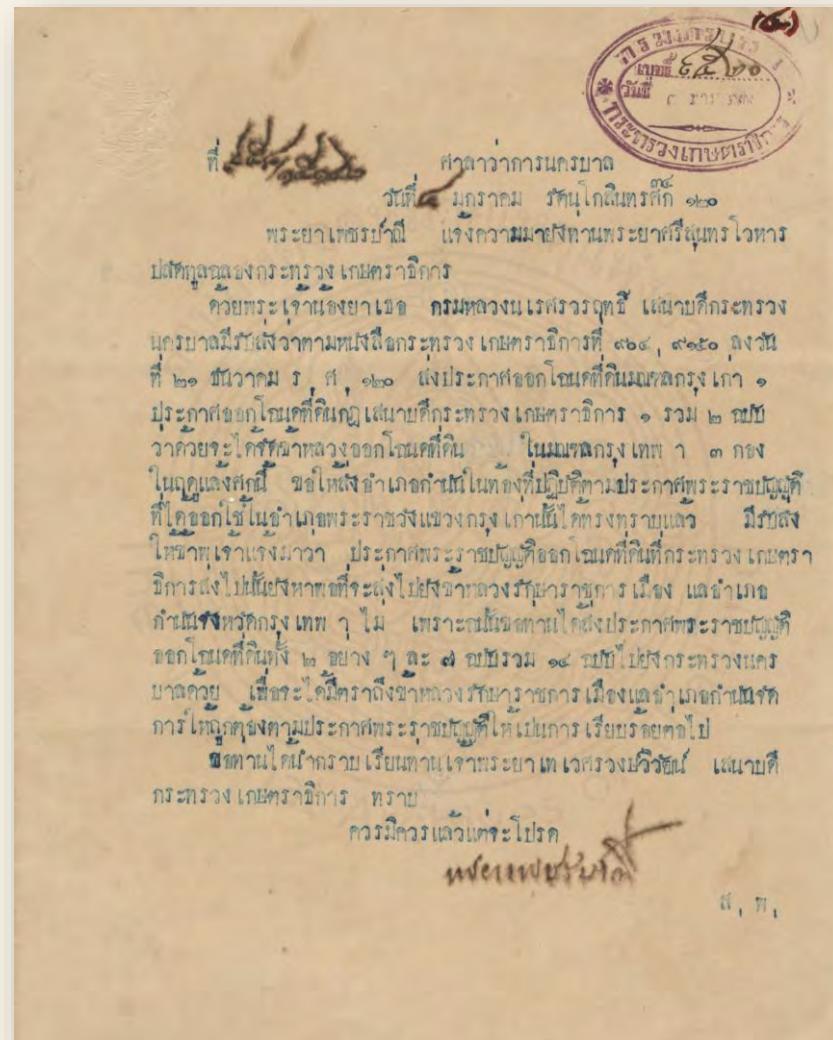 กระทรวงเกษตราธิการ
วันที่
ที่
ศาลาว่าการนครบาล
วันที่ ๔ มกราคม รัตนโกสินทรศ๊ก ๑๒๐
พระยาเพชรปาณี แจ้งความมายังท่านพระยาศรีสุนทรโวหาร
ปลัดทูลฉลองกระทรวงเกษตราธิการ
ด้วยพระเจ้าน้องยาเธอ กรมหลวงนเรศรวรฤทธิ์ เสนาบดีกระทรวง
นครบาลมีรับสั่งว่าตามหนังสือกระทรวงเกษตราธิการที่ ๙๖๔, ๙๑๕๐ ลงวัน
ที่ ๒๑ ธันวาคม ร,ศ,๑๒๐ ส่งประกาศออกโฉนดที่ดินมณฑลกรุงเก่า ๑
ประกาศออกโฉนดที่ดินกฎเสนาบดีกระทรวงเกษตราธิการ ๑ รวม ๒ ฉบับ
ว่าด้วยจะได้จัดข้าหลวงออกโฉนดที่ดิน ในมณฑลกรุงเทพ ๅ ๓ กอง
ในฤดูแล้งศกนี้ ขอให้สั่งอำเภอกำนันในท้องที่ปฏิบัติตามประกาศพระราชบัญญัติ
ที่ได้ออกใช้ในอำเภอพระราชวังแขวงกรุงเก่านั้นได้ทรงทราบแล้ว มีรับสั่ง
ให้ข้าพเจ้าแจ้งมาว่า ประกาศพระราชบัญญัติออกโฉนดที่ดินที่กระทรวงเกษตรา
ธิการส่งไปนั้นยังหาพอที่จะส่งไปยังข้าหลวงรักษาราชการเมือง แลอำเภอ
กำนันจังหวัดกรุงเทพ ๅ ไม่ เพราะฉนั้นขอท่านได้ส่งประกาศพระราชบัญญัติ
ออกโฉนดที่ดินทั้ง ๒ อย่าง ๆ ละ ๗ ฉบับรวม ๑๔ ฉบับไปยังกระทรวงนคร
บาลด้วย เพื่อจะได้มีตราถึงข้าหลวงรักษาราชการเมืองแลอำเภอกำนันจัด
การให้ถูกต้องตามประกาศพระราชบัญญัติให้เปนการเรียบร้อยต่อไป
ขอท่านได้นำกราบเรียนท่านเจ้าพระยาเทเวศรวงษวิวัฒน์ เสนาบดี
กระทรวงเกษตราธิการ ทราบ
ควรมิควรแล้วแต่จะโปรด
ส,พ,